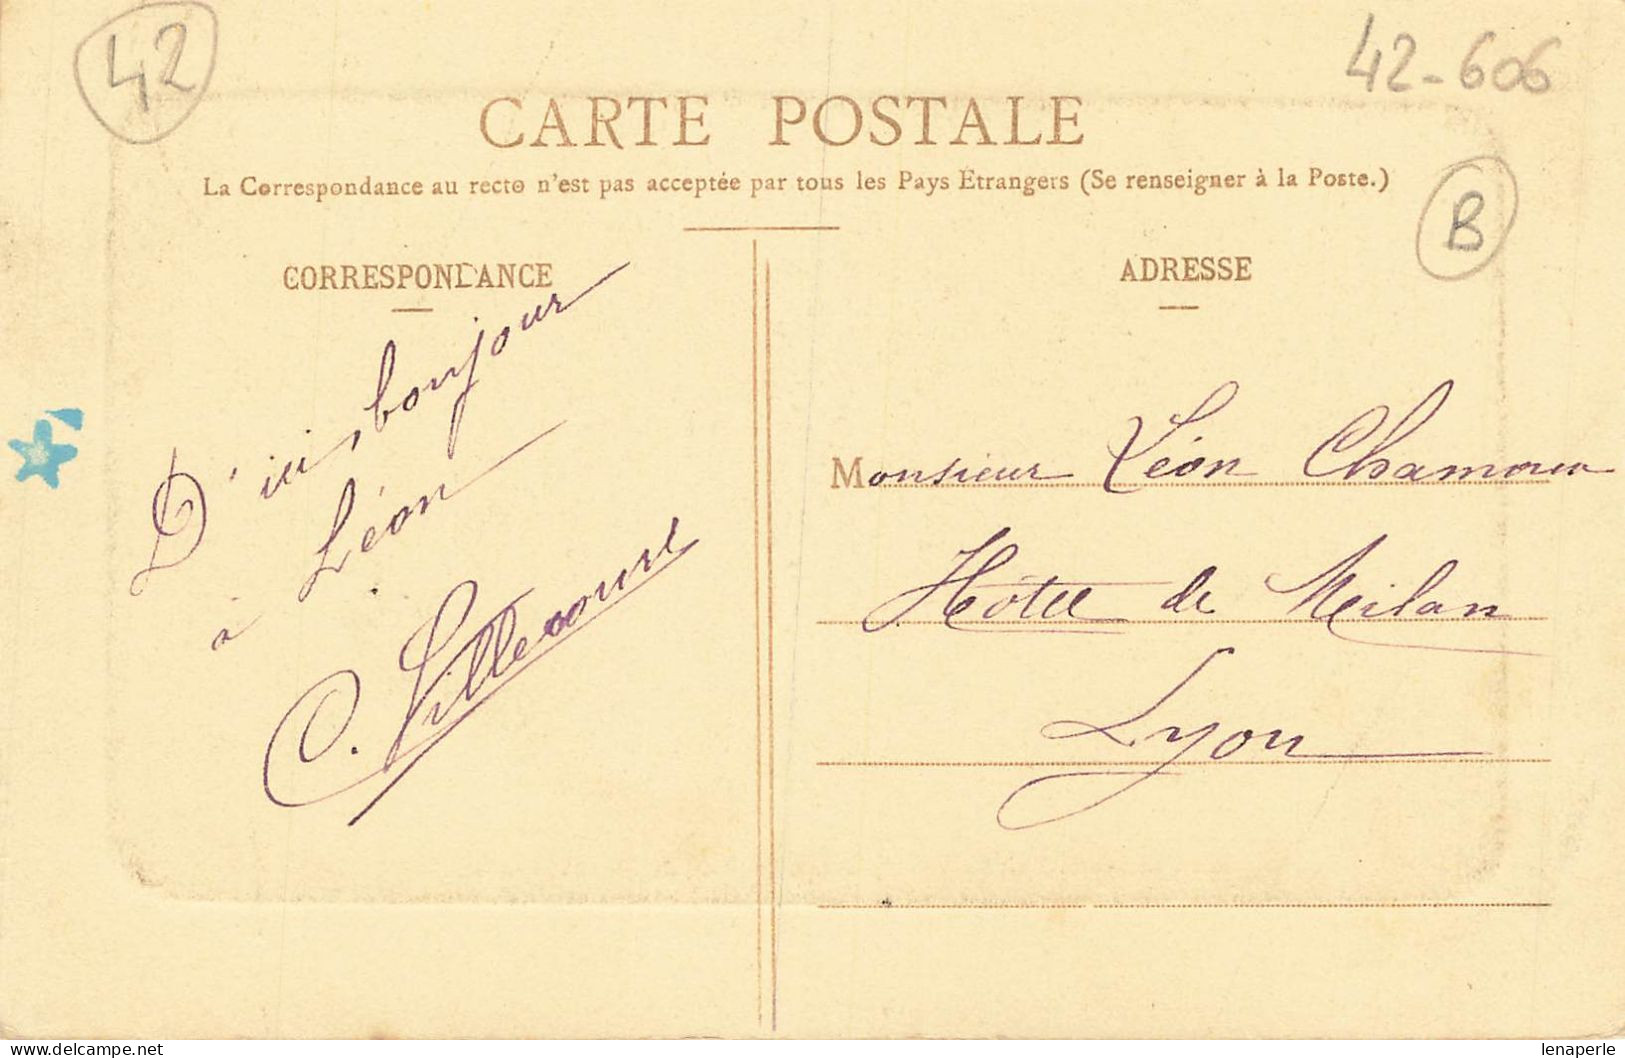 42
42-606
CARTE POSTALE
La Correspondance au recto n'est pas acceptée par tous les Pays Etrangers (Se renseigner à la Poste.)
B
CORRESPONDANCE
D'ici, bonjour
à Léon
C.
ADRESSE
Monsieur Léon
Hôtel de Milan
Lyon
https://www.delcampe.net
lenaperle